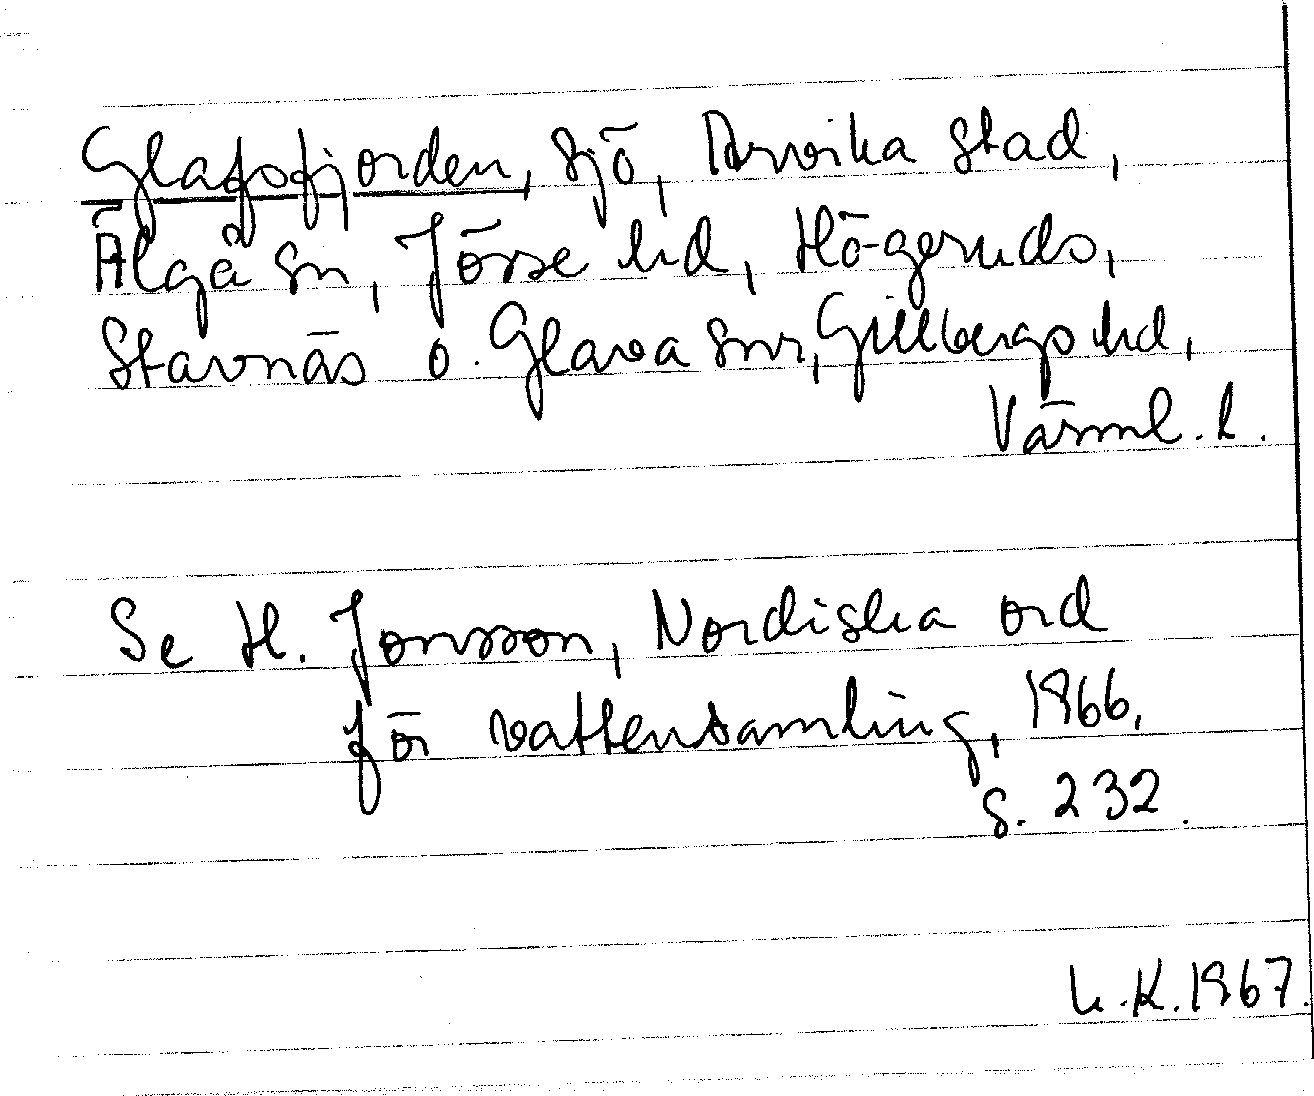 Glafsfjorden, sjö, Arvika stad,
Älgå sn, Jösse hd, Högeruds,
Stavnäs o. Glava snr, Gillbergs hd,
Värml. l.
Se H. Jonsson, Nordiska ord
för vattensamling, 1966,
s. 232.
L.K. 1967.